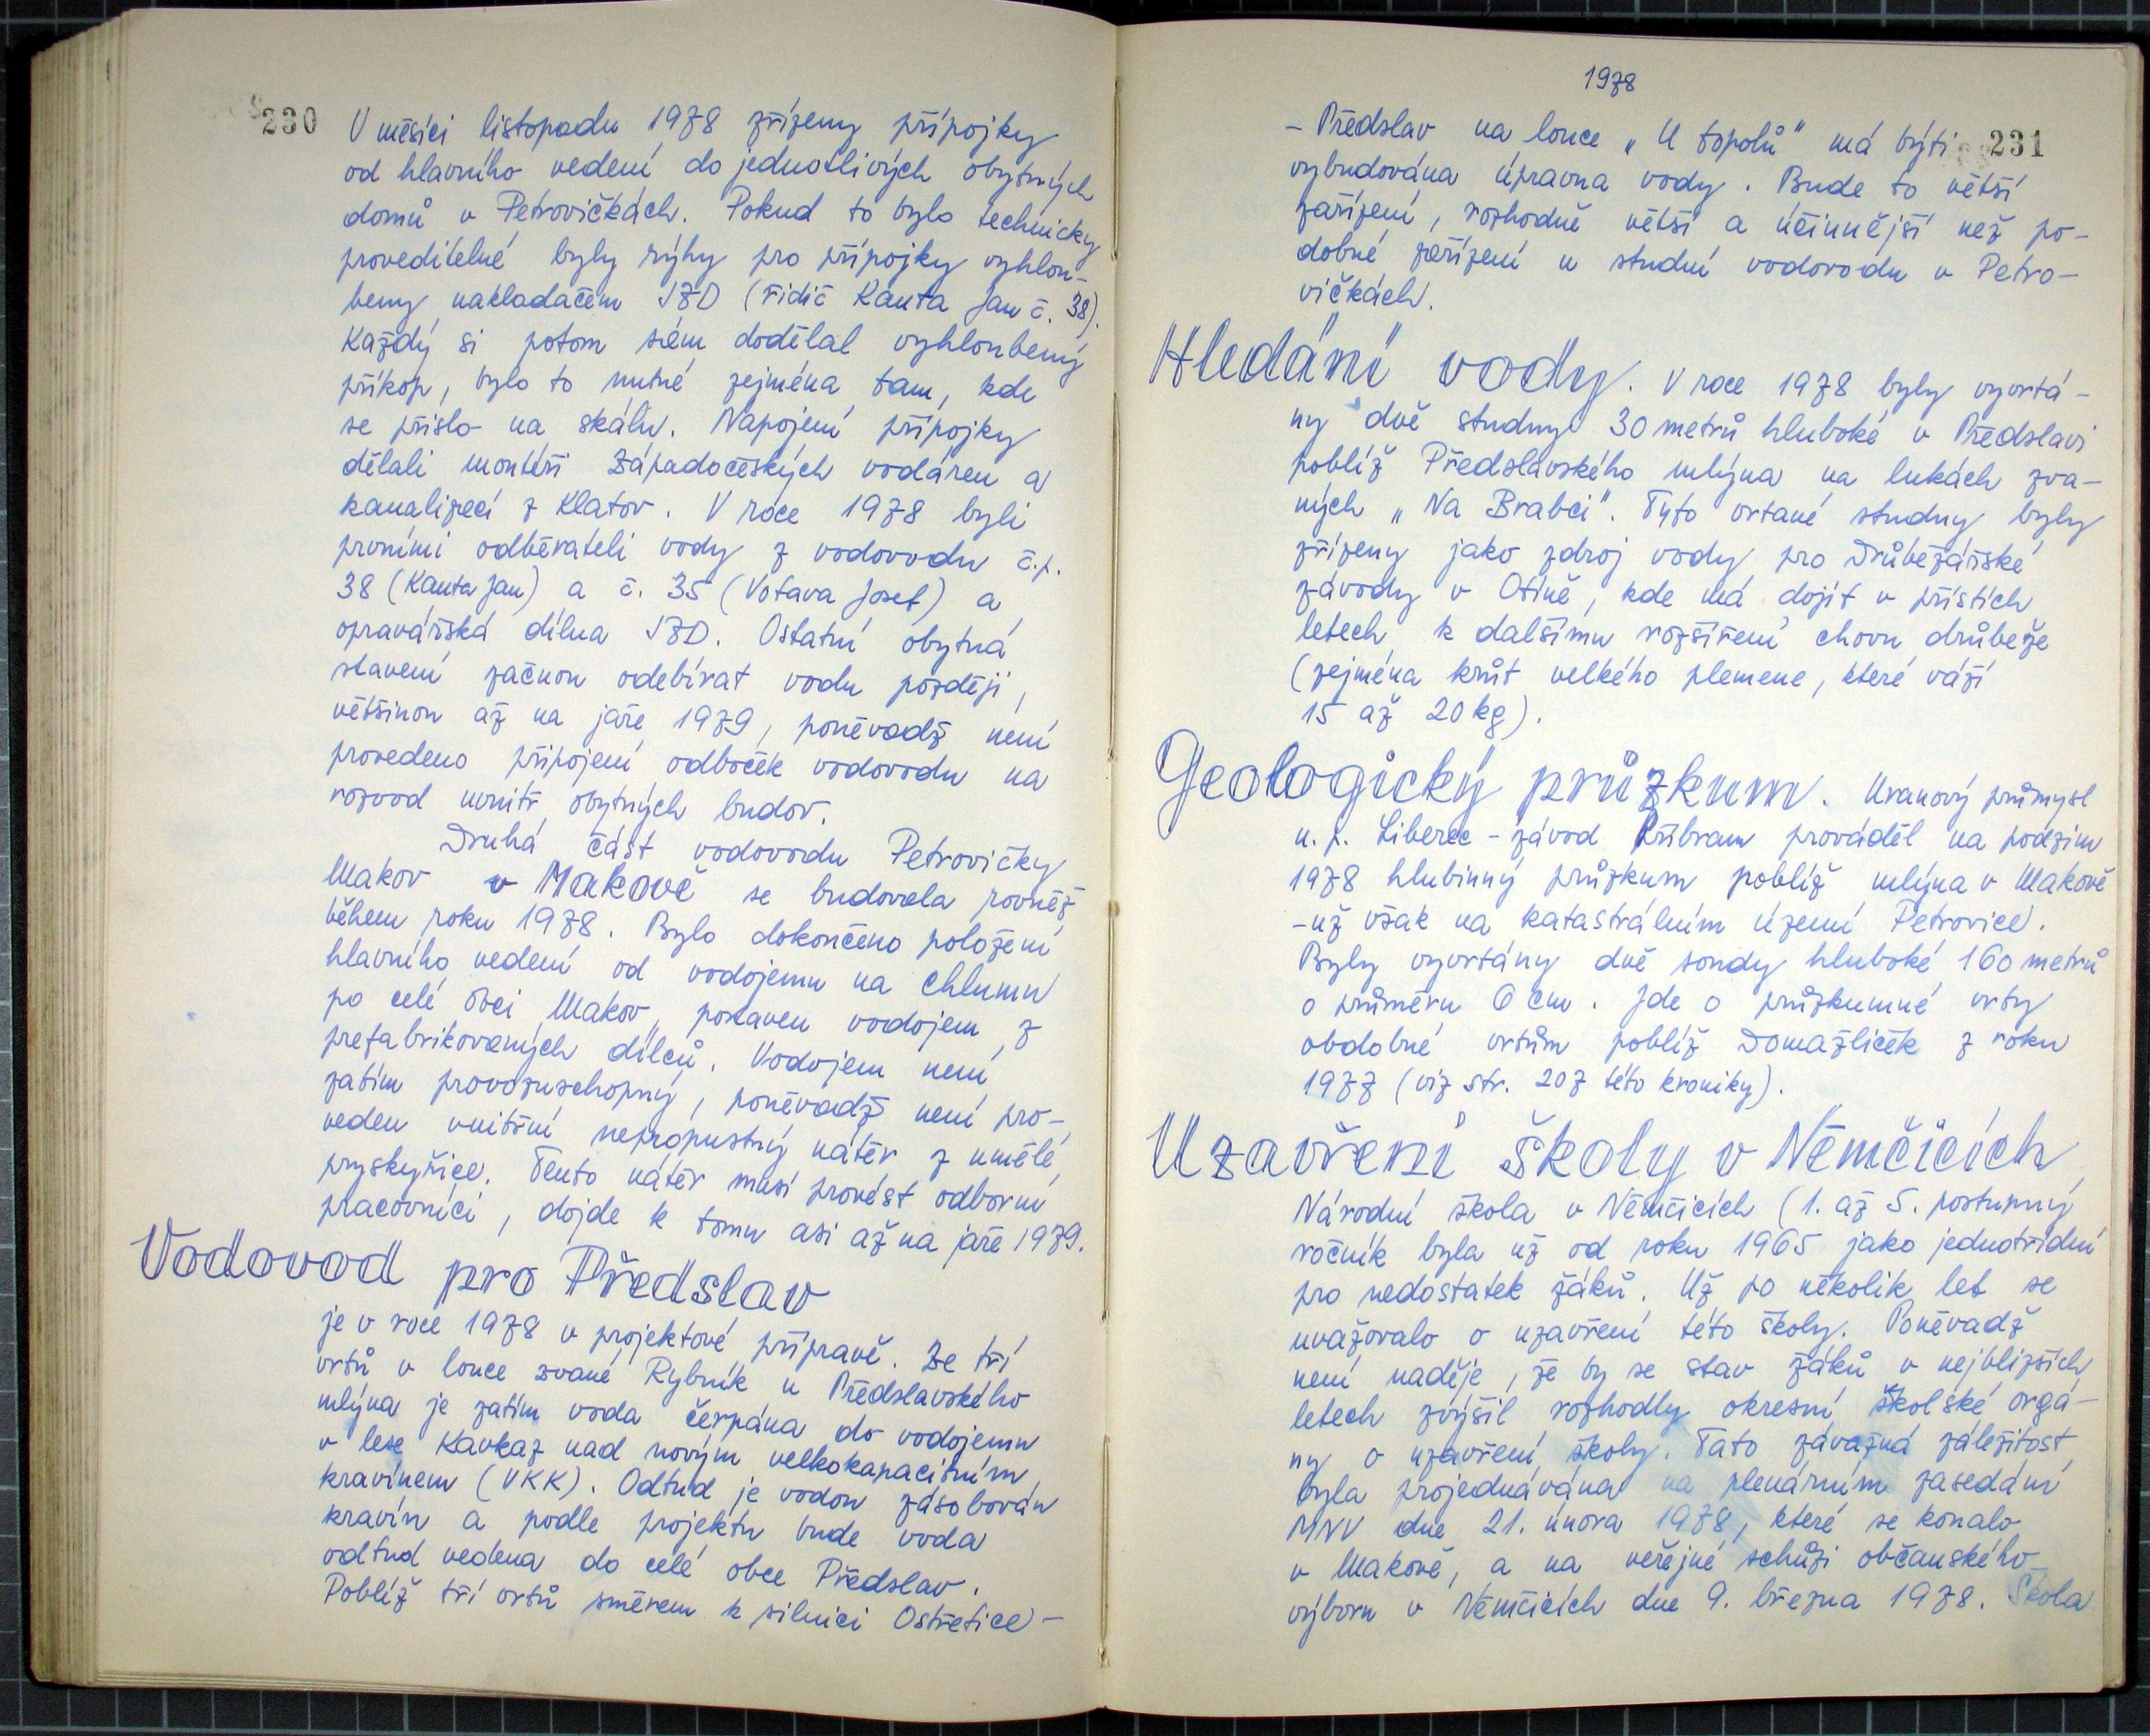 230
V měsíci listopadu 1978 zřízeny přípojky
od hlavního vedení do jednotlivých obytných
domů v Petrovičkách. Pokud to bylo technicky
proveditelné byly rýhy pro přípojky vyhlou-
beny nakladačem JZD (řidič Kauta Jan č. 38).
Každý si potom sám dodělal vyhloubený
příkop, bylo to nutné zejména tam, kde
se přišlo na skálu. Napojení přípojky
dělali montéři Západočeských vodáren a
kanalizací z Klatov. V roce 1978 byli
prvními odběrateli vody z vodovodu č.p.
38 (Kauta Jan) a č. 35 (Votava Josef) a
opravářská dílna JZD. Ostatní obytná
stavení začnou odebírat vodu později,
většinou až na jaře 1979, poněvadž není
provedeno připojení odboček vodovodu na
rozvod uvnitř obytných budov.
Druhá část vodovodu Petrovičky
Makov v Makově se budovala rovněž
během roku 1978. Bylo dokončeno položení
hlavního vedení od vodojemu na Chlumu
po celé obci Makov, postaven vodojem z
prefabrikovaných dílců. Vodojem není
zatím provozuschopný, poněvadž není pro-
veden vnitřní nepropustný nátěr z umělé
pryskyřice. Tento nátěr musí provést odborní
pracovníci, dojde k tomu asi až na jaře 1979.
Vodovod pro Předslav
je v roce 1978 v projektové přípravě. Ze tří
vrtů v louce zvané Rybník u Předslavského
mlýna je zatím voda čerpána do vodojemu
v lese Kavkaz nad novým velkokapacitním
kravínem (VKK). Odtud je vodou zásobován
kravín a podle projektu bude voda
odtud vedena do celé obce Předslav.
Poblíž tří vrtů směrem k silnici Ostřetice-
1978
231
- Předslav na louce „U topolů" má býti
vybudována úpravna vody. Bude to větší
zařízení, rozhodně větší a účinnější než po-
dobné zařízení u studní vodovodu v Petro-
vičkách.
Hledání vody. V roce 1978 byly vyvrtá-
ny dvě studny 30 metrů hluboké v Předslavi
poblíž Předslavského mlýna na lukách zva-
ných „Na Brabci". Tyto vrtané studny byly
zřízeny jako zdroj vody pro Drůbežářské
závody v Otíně, kde má dojít v příštích
letech k dalšímu rozšíření chovu drůbeže
(zejména krůt velkého plemene, které váží
15 až 20 kg).
Geologický průzkum. Uranový průmysl
n. p. Liberec - závod Příbram prováděl na podzim
1978 hlubinný průzkum poblíž mlýna v Makově
- už však na katastrálním území Petrovice.
Byly vyvrtány dvě sondy hluboké 160 metrů
o průměru 6 cm. Jde o průzkumné vrty
obdobné vrtům poblíž Domažliček z roku
1977 (viz str. 207 této kroniky).
Uzavření školy v Němčicích
Národní škola v Němčicích (1. až 5. postupný
ročník byla už od roku 1965 jako jednotřídní
pro nedostatek žáků. Už po několik let se
uvažovalo o uzavření této školy. Poněvadž
není naděje, že by se stav žáků v nejbližších
letech zvýšil rozhodly okresní školské orgá-
ny o uzavření školy. Tato závažná záležitost
byla projednávána na plenárním zasedání
MNV dne 21. února 1978, které se konalo
v Makově, a na veřejné schůzi občanského
výboru v Němčicích dne 9. března 1978. Škola